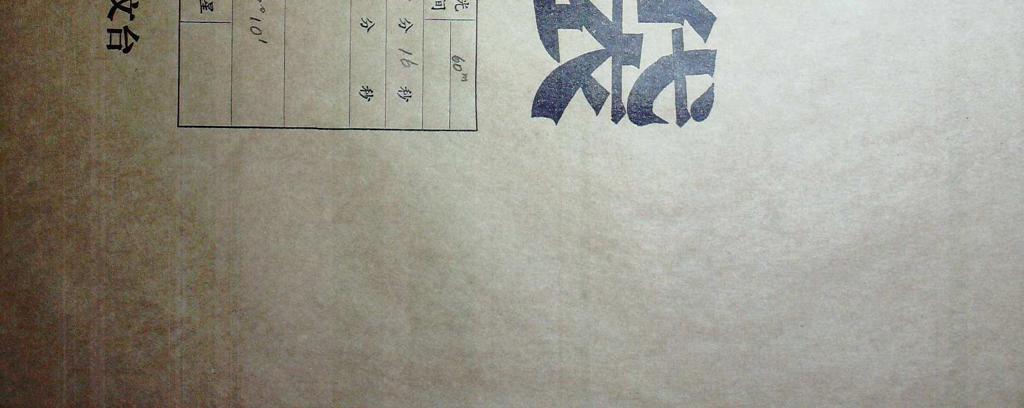 袋
光
间 60m
分 16 秒
分 秒
°10′
星
文台